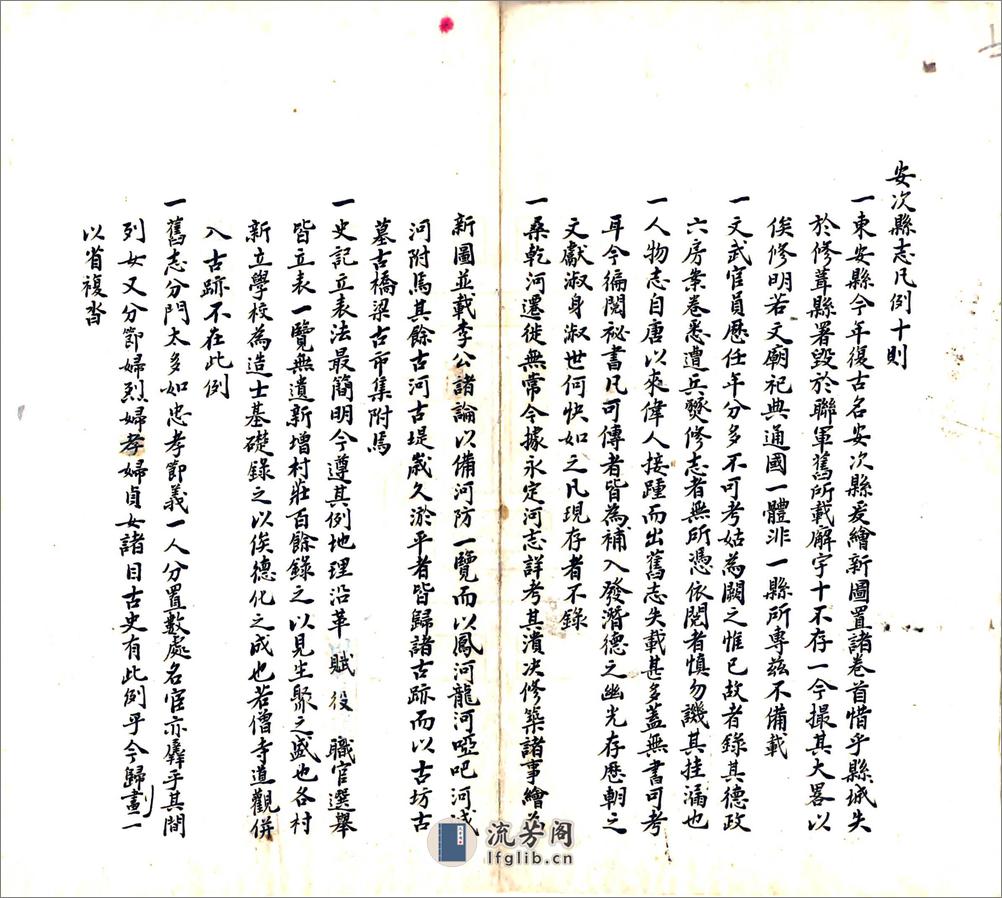 安次縣志凡例十則
一東安縣今年復古名安次縣爰繪新圖置諸卷首惜乎縣城失
於修葺縣署毀於聯軍舊所載廨宇十不存一今撮其大畧以
俟修明若文廟祀典通國一體非一縣所專茲不備載
一文武官員歷任年分多不可考姑為闕之惟已故者錄其德政
六房案卷悉遭兵燹修志者無所憑依閱者慎勿譏其挂漏也
一人物志自唐以來偉人接踵而出舊志失載甚多蓋無書可考
耳今徧閱祕書凡可傳者皆為補入發潛德之幽光存歷朝之
文獻淑身淑世何快如之凡現存者不錄
一桑乾河遷徙無常今據永定河志詳考其潰决修築諸事繪為
新圖並載李公諸論以備河防一覽而以鳳河龍河啞吧河淺
河附馬其餘古河古堤歲久淤平者皆歸諸古跡而以古坊古
墓古橋梁古市集附馬
一史記立表法最簡明今遵其例地理沿革 賦役 職官選舉
皆立表一覽無遺新增村莊百餘錄之以見生聚之盛也各村
新立學校為造士基礎錄之以俟德化之成也若僧寺道觀併
入古跡不在此例
一舊志分門太多如忠孝節義一人分置數處名宦亦羼乎其間
列女又分節婦烈婦孝婦貞女諸目古史有此例乎今歸畫一
以省複沓
流芳阁
lfglib.cn